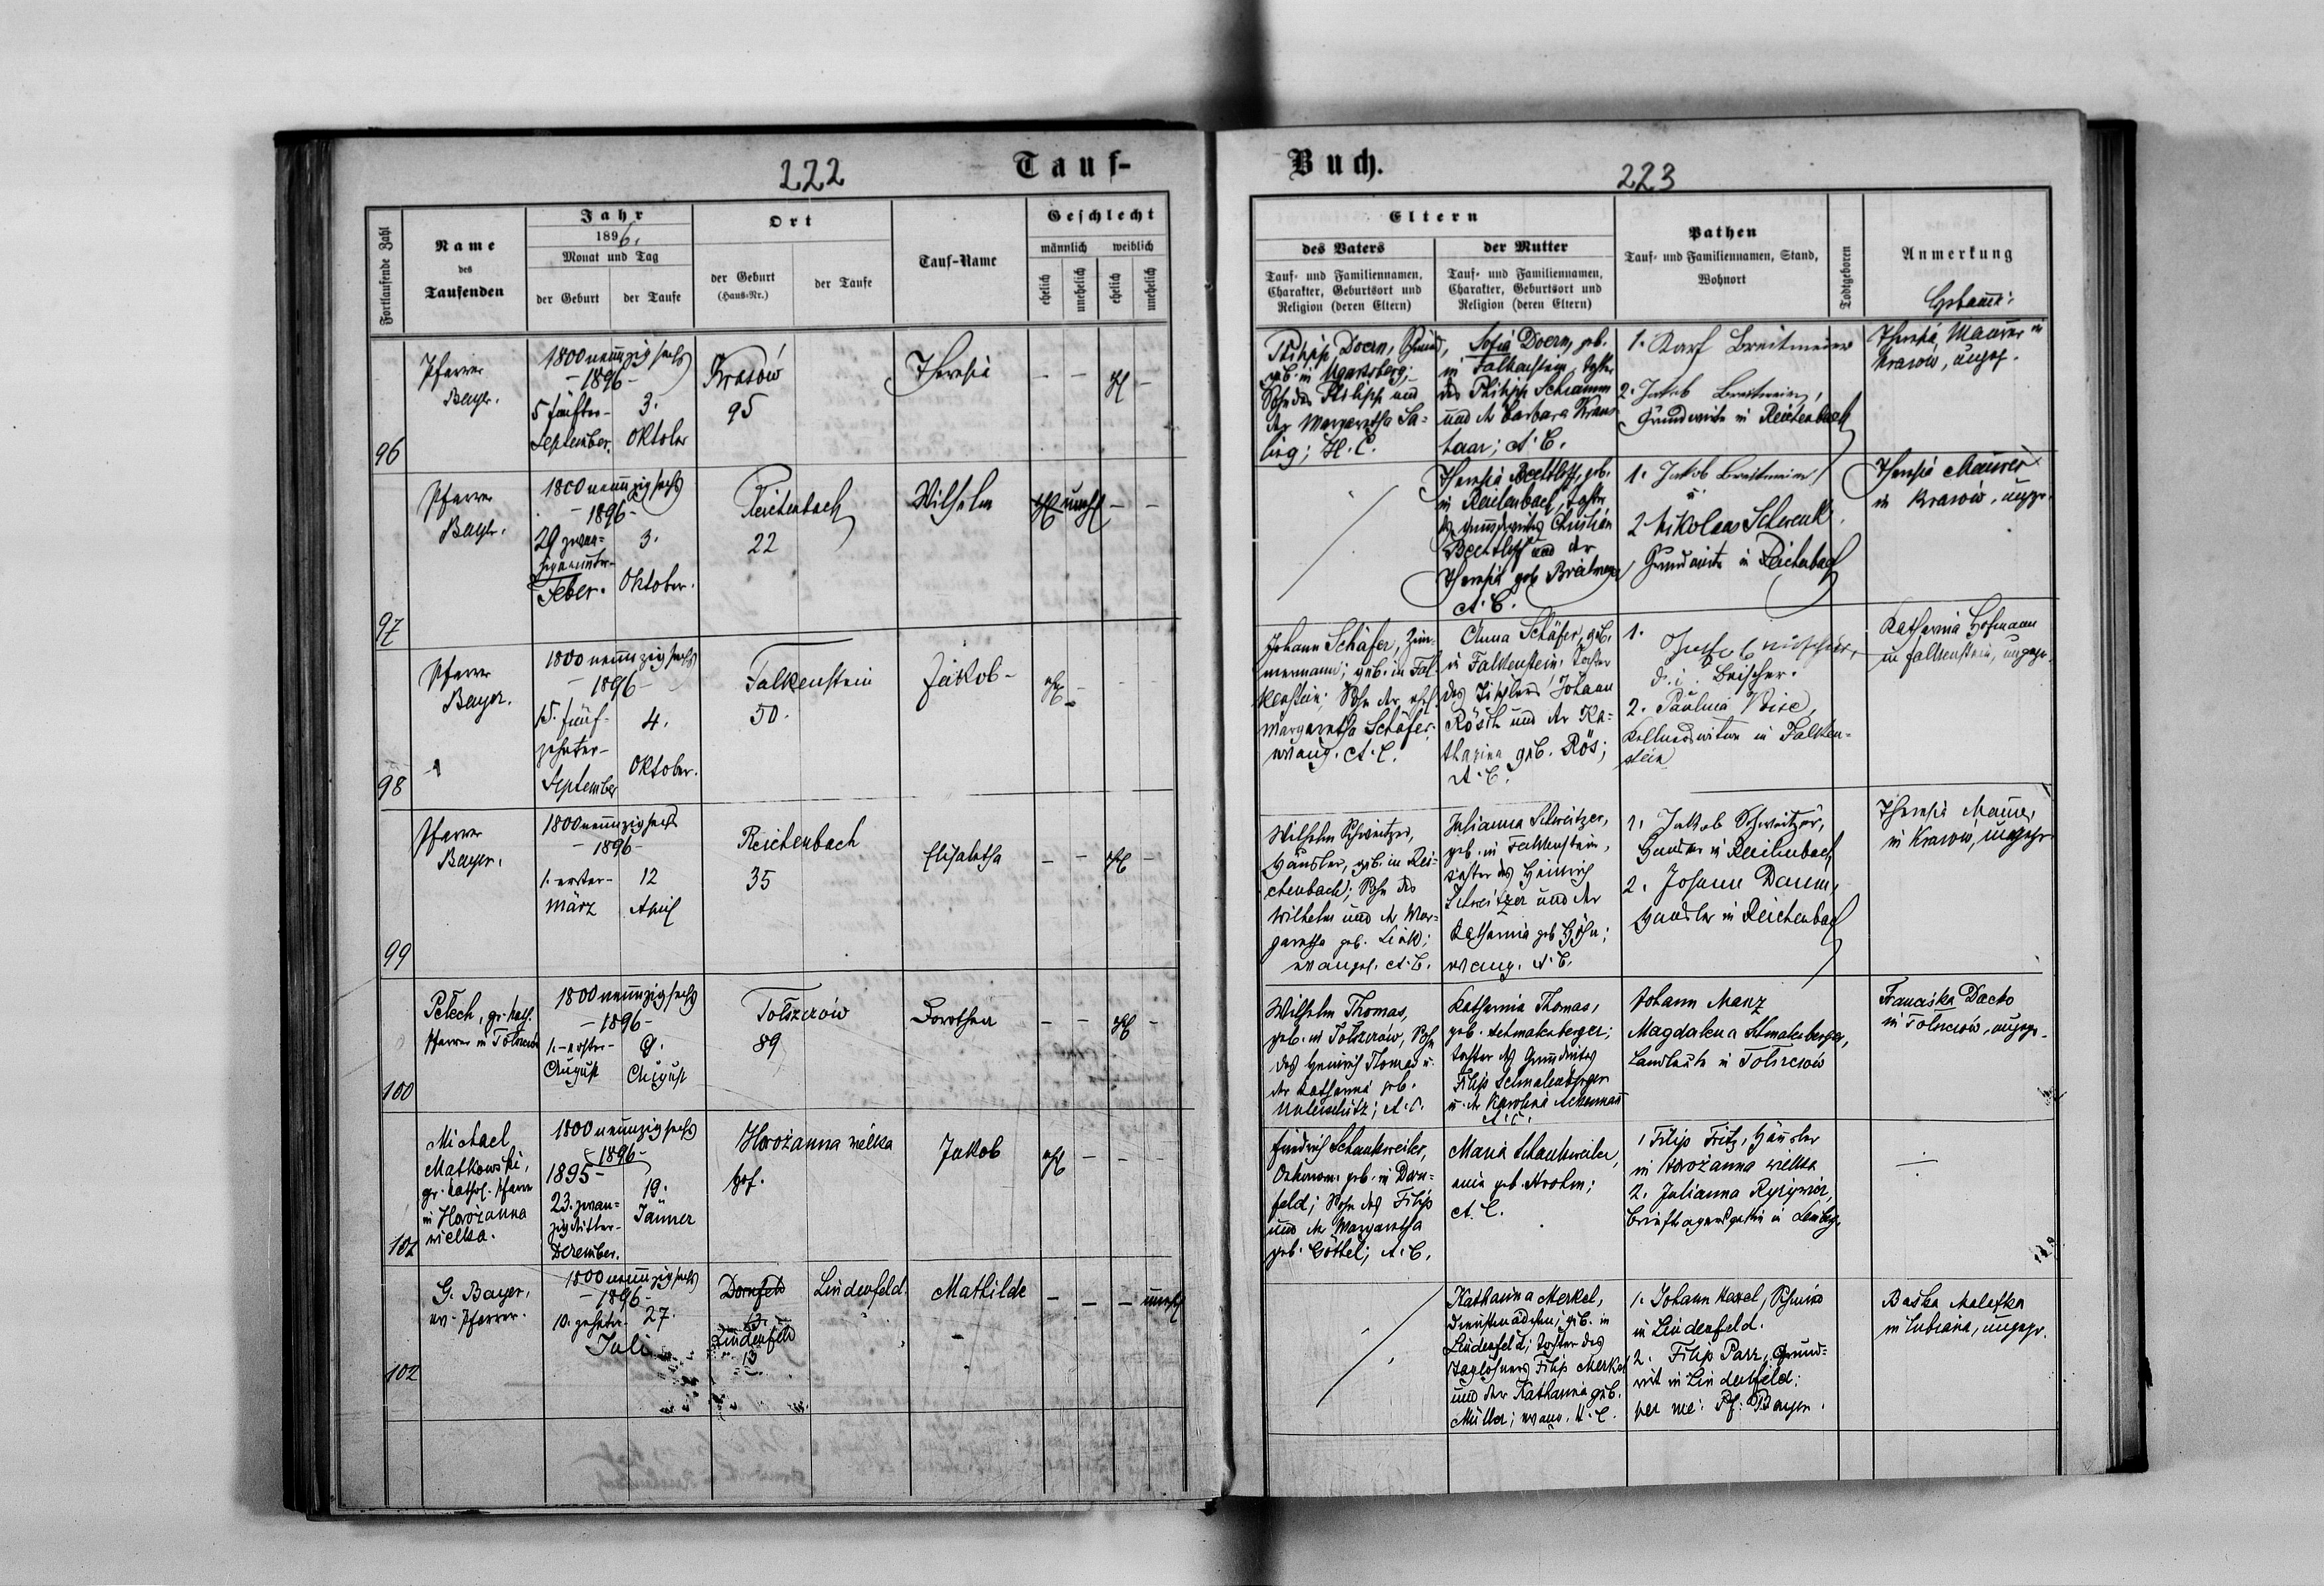 222
Tauf-
Fortlaufende Zahl
Name
des
Taufenden
Jahr
1896.
Monat und Tag
der Geburt
der Taufe
Ort
der Geburt
(Haus-Nr.)
der Taufe
Tauf-Name
Geschlecht
männlich
weiblich
ehelich
unehelich
ehelich
unehelich
96
Pfarrer
Bayer.
1800 neunzig sechs
- 1896 -
5 fünfter-
September.
3.
Oktober
Krasów
95
Theresia
- - ehl -
97
Pfarrer
Bayer.
1800 neunzig sechs
- 1896 -
29 zwan=
zigneunter-
Feber.
3.
Oktober.
Reichenbach
22
Wilhelm
unehl - -
98
Pfarrer
Bayer.
1800 neunzig sechs
- 1896 -
15. fünf-
zehnter-
September
4.
Oktober.
Falkenstein
50.
Jakob -
ehl - - -
99
Pfarrer
Bayer.
1800 neunzig sechs
- 1896 -
1. erster-
März
12
April
Reichenbach
35
Elisabetha
- - ehl -
100
Petech, gr. kath.
Pfarrer in Tołszczów
1800 neunzig sechs
- 1896 -
1. - erster -
August
9.
August
Tołszczów
89
Dorothea
- - ehl -
101
Michael
Matkowski,
gr. kathol. Pfarrer
in Horożanna
wielka.
1800 neunzig sechs
- 1896 -
1895 -
23. zwan=
zigdritter-
Dezember.
19.
Jänner
Horożanna wielka
Hof.
Jakob
ehl - - -
102
G. Bayer,
ev. Pfarrer.
1800 neunzig sechs
- 1896 -
10. zehnter- 27.
Juli
Dornfeld
13.
Lindenfeld
13
Lindenfeld.
Mathilde
- - - unehl
Buch.
223
Eltern
des Vaters
Tauf- und Familiennamen,
Charakter, Geburtsort und
Religion (deren Eltern)
der Mutter
Tauf- und Familiennamen,
Charakter, Geburtsort und
Religion (deren Eltern)
Pathen
Tauf- und Familiennamen, Stand,
Wohnort
Todtgeboren
Anmerkung
Hebamme:
Philipp Doern, Schmied,
geb. in Ugartsberg;
Sohn des Philipp und
der Margaretha Sa=
ling; H. C.
Sofia Doern, geb.
in Falkenstein, Tochter
des Philipp Schramm
und der Barbara Kraus
A. C.
1. Karl Breitmeier
2. Jakob Breitmeier,
Grundwirte in Reichenbach
Theresia Maurer in
Krasów, ungepr.
Theresia Bechtloff, geb.
in Reichenbach, Tochter
des Grundwirtes Christian
Bechtloff und der
Theresia geb. Breitmeier
A. C.
1. Jakob Breitmeier
u.
2 Nikolaus Schwenk.
Grundwirte in Reichenbach
Theresia Maurer
in Krasów, ungepr.
Johann Schäfer, Zim=
mermann; geb. in Fal=
kenstein. Sohn der
Margaretha Schäfer;
evang. A. C.
Anna Schäfer, geb.
in Falkenstein, Tochter
des Tischlers Johann
Rösch und der Ka=
tharina geb. Rös;
A. C.
1.
2. Paulina
in Falken=
stein
Katharina Hofmann
in Falkenstein, ungepr.
Wilhelm Schweitzer,
Häusler, geb. in Rei=
chenbach; Sohn des
Wilhelm und der Mar=
garetha geb. Link;
evangel. A. C.
Julianna Schweitzer,
geb. in Falkenstein,
Tochter des Heinrich
Schweitzer und der
Katharina geb. Höhn;
evang. A. C.
1. Jakob Schweitzer,
Häusler in Reichenbach
2. Johann Daum,
Häusler in Reichenbach
Theresia Maurer
in Krasów, ungepr.
Wilhelm Thomas,
geb. in Tołszczów, Sohn
des Heinrich Thomas u.
der Katharina geb.
Unterschütz; A. C.
Katharina Thomas,
geb. Schmalenberger;
Tochter des Grundwirtes
Filip Schmalenberger
u. der Karolina Ackermann
A. C.
Johann Manz
Magdalena Schmalenberger,
Landleute in Tołszczów
Franciska Dacko
in Tołszczów, ungepr.
Friedrich Schankweiler,
Oekonom, geb. in Dorn=
feld; Sohn des Filip
und der Margaretha
geb. Göttel; A. C.
Maria Schankweiler,
geb.
A. C.
1 Filip Fritz, Häusler
in Horożanna wielka
2. Julianna
Briefträgersgattin in Lemberg.
Katharina Merkel,
Dienstmädchen; geb. in
Lindenfeld; Tochter des
Taglöhners Filip Merkel
und der Katharina geb.
Müller; evang. A. C.
1. Johann Manz, Schmied
in Lindenfeld.
2. Filip Parr, Grund=
wirt in Lindenfeld;
per me: Pf: Bayer.
Baśka Malefka
in Lubiana, ungepr.